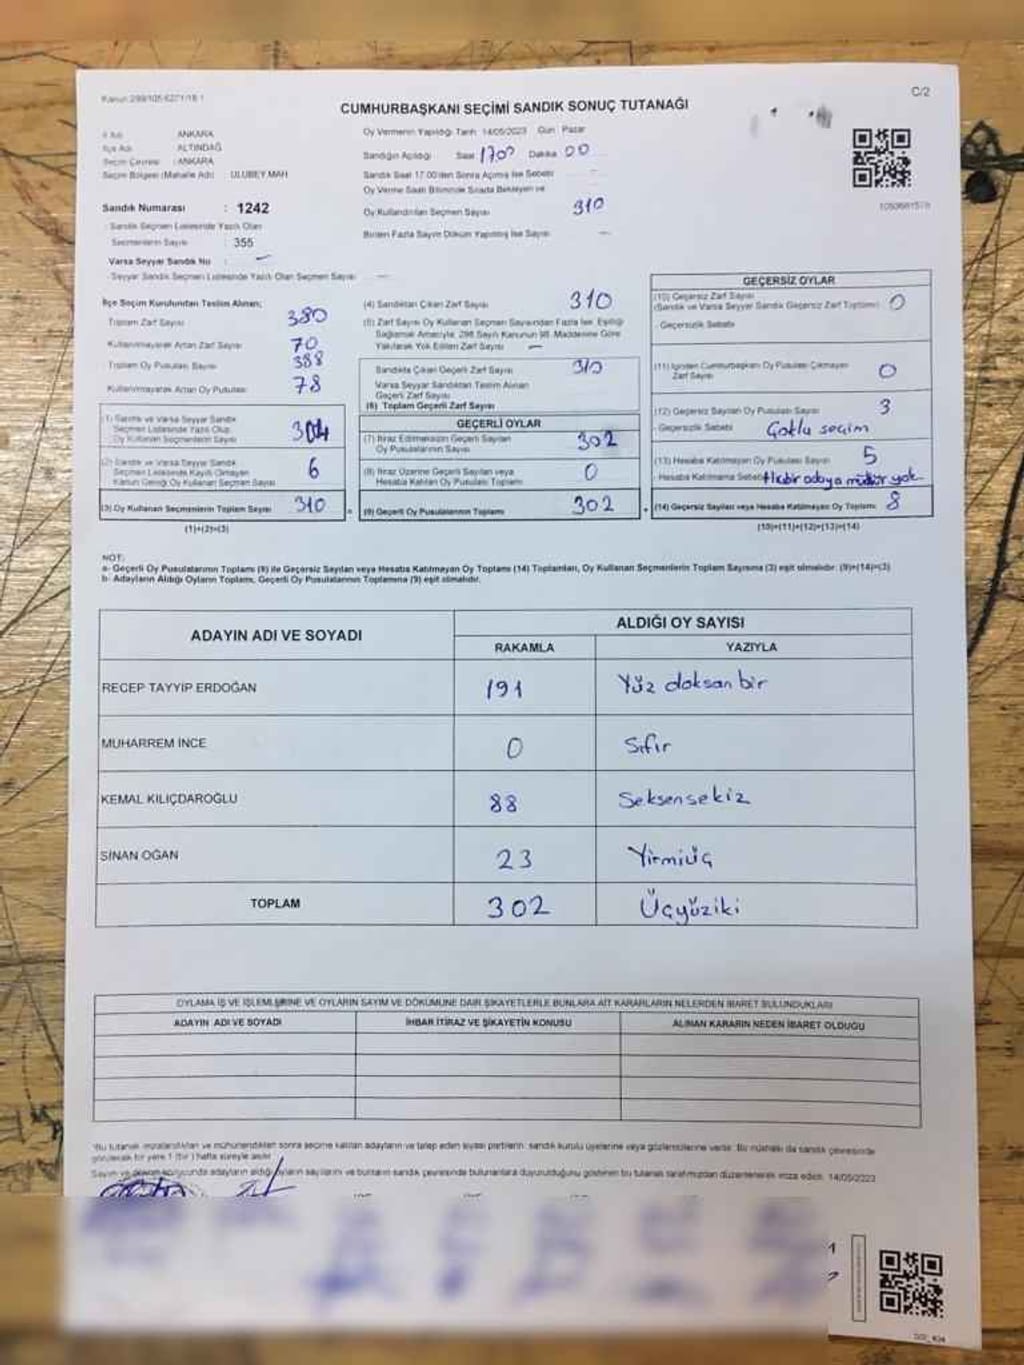 Kanun:298/105-6271/18 1
C/2
CUMHURBAŞKANI SEÇİMİ SANDIK SONUÇ TUTANAĞI
İl Adı ANKARA
İlçe Adı ALTINDAĞ
Seçim Çevresi : ANKARA
Seçim Bölgesi (Mahalle Adı) : ULUBEY MAH
Sandık Numarası : 1242
Sandık Seçmen Listesinde Yazılı Olan
Seçmenlerin Sayısı : 355
Varsa Seyyar Sandık No : -
Seyyar Sandık Seçmen Listesinde Yazılı Olan Seçmen Sayısı -
Oy Vermenin Yapıldığı Tarih 14/05/2023 Gün Pazar
Sandığın Açıldığı Saat 1700 Dakika 00
Sandık Saat 17.00'den Sonra Açılmış İse Sebebi -
Oy Verme Saati Bitiminde Sırada Bekleyen ve
Oy Kullandırılan Seçmen Sayısı 310
Birden Fazla Sayım Döküm Yapılmış İse Sayısı -
İlçe Seçim Kurulundan Teslim Alınan;
Toplam Zarf Sayısı 380
Kullanılmayarak Artan Zarf Sayısı 70
Toplam Oy Pusulası Sayısı 388
Kullanılmayarak Artan Oy Pusulası 78
(1) Sandık ve Varsa Seyyar Sandık
Seçmen Listesinde Yazılı Olup,
Oy Kullanan Seçmenlerin Sayısı 304
(2) Sandık ve Varsa Seyyar Sandık
Seçmen Listesinde Kayıtlı Olmayan
Kanun Gereği Oy Kullanan Seçmen Sayısı 6
(3) Oy Kullanan Seçmenlerin Toplam Sayısı 310
(1)+(2)=(3)
(4) Sandıktan Çıkan Zarf Sayısı 310
(5) Zarf Sayısı Oy Kullanan Seçmen Sayısından Fazla İse, Eşitliği
Sağlamak Amacıyla; 298 Sayılı Kanunun 98. Maddesine Göre
Yakılarak Yok Edilen Zarf Sayısı -
Sandıkta Çıkan Geçerli Zarf Sayısı 310
Varsa Seyyar Sandıktan Teslim Alınan
Geçerli Zarf Sayısı
(6) Toplam Geçerli Zarf Sayısı
GEÇERLİ OYLAR
(7) İtiraz Edilmeksizin Geçerli Sayılan
Oy Pusulalarının Sayısı 302
(8) İtiraz Üzerine Geçerli Sayılan veya
Hesaba Katılan Oy Pusulası Toplamı 0
(9) Geçerli Oy Pusulalarının Toplamı 302
GEÇERSİZ OYLAR
(10) Geçersiz Zarf Sayısı
(Sandık ve Varsa Seyyar Sandık Geçersiz Zarf Toplamı) 0
Geçersizlik Sebebi
(11) İçinden Cumhurbaşkanı Oy Pusulası Çıkmayan
Zarf Sayısı 0
(12) Geçersiz Sayılan Oy Pusulası Sayısı 3
Geçersizlik Sebebi Çoklu seçim
(13) Hesaba Katılmayan Oy Pusulası Sayısı 5
Hesaba Katılmama Sebebi Hiçbir adaya mühür yok
(14) Geçersiz Sayılan veya Hesaba Katılmayan Oy Toplamı 8
(10)+(11)+(12)+(13)=(14)
NOT:
a- Geçerli Oy Pusulalarının Toplamı (9) ile Geçersiz Sayılan veya Hesaba Katılmayan Oy Toplamı (14) Toplamları, Oy Kullanan Seçmenlerin Toplam Sayısına (3) eşit olmalıdır. (9)+(14)=(3)
b- Adayların Aldığı Oyların Toplamı, Geçerli Oy Pusulalarının Toplamına (9) eşit olmalıdır.
ADAYIN ADI VE SOYADI ALDIĞI OY SAYISI
RAKAMLA YAZIYLA
RECEP TAYYİP ERDOĞAN 191 Yüz doksan bir
MUHARREM İNCE 0 Sıfır
KEMAL KILIÇDAROĞLU 88 Seksensekiz
SİNAN OĞAN 23 Yirmiüç
TOPLAM 302 Üçyüziki
OYLAMA İŞ VE İŞLEMLERİNE VE OYLARIN SAYIM VE DÖKÜMÜNE DAİR ŞİKAYETLERLE BUNLARA AİT KARARLARIN NELERDEN İBARET BULUNDUKLARI
ADAYIN ADI VE SOYADI İHBAR İTİRAZ VE ŞİKAYETİN KONUSU ALINAN KARARIN NEDEN İBARET OLDUĞU
Bu tutanak imzalandıktan ve mühürlendikten sonra seçime katılan adayların ve talep eden siyasi partilerin sandık kurulu üyelerine veya gözlemcilerine verilir. Bir nüshası da sandık çevresinde
görülecek bir yere 1 (bir) hafta süreyle asılır.
Sayım ve döküm sonucunda adayların aldığı oyların sayılarını ve bunların sandık çevresinde bulunanlara duyurulduğunu gösteren bu tutanak tarafımızdan düzenlenerek imza edildi. 14/05/2023